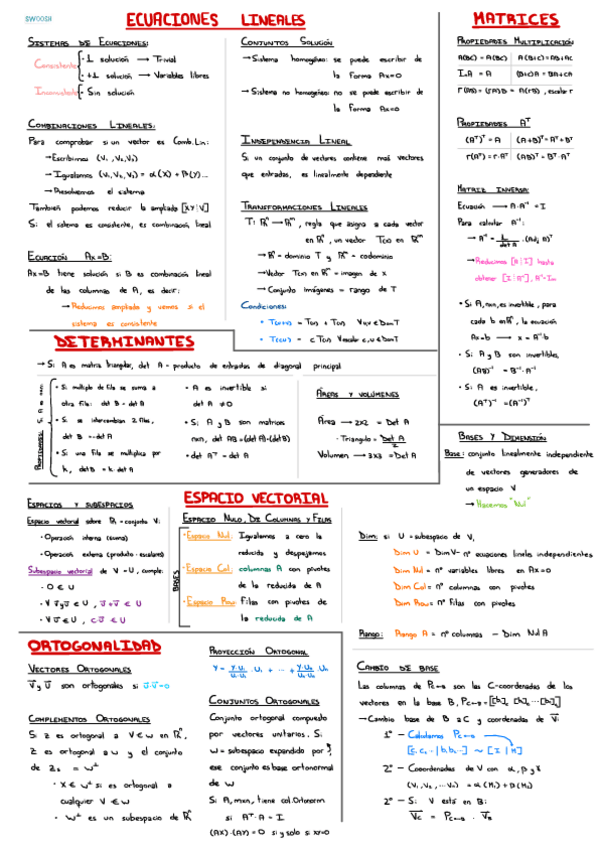 SWOOSH
ECUACIONES LINEALES
SISTEMAS DE ECUACIONES:
Consistente
· 1 solución → Trivial
· +1 solución → Variables libres
Inconsistente
· Sin solución
COMBINACIONES LINEALES:
Para comprobar si un vector es Comb. Lin:
→ Escribimos (V₁, V₂, V₃)
→ Igualamos (V₁, V₂, V₃) = α(X) + β(Y)...
→ Resolvemos el sistema
También podemos reducir la ampliada [X Y | V]
Si el sistema es consistente, es combinación lineal
ECUACIÓN AX=B:
Ax=B tiene solución si B es combinación lineal
de las columnas de A, es decir:
→ Reducimos ampliada y vemos si el
sistema es consistente
CONJUNTOS SOLUCIÓN
→ Sistema homogéneo: se puede escribir de
la forma Ax=0
→ Sistema no homogéneo: no se puede escribir de
la forma Ax=0
INDEPENDENCIA LINEAL
Si un conjunto de vectores contiene más vectores
que entradas, es linealmente dependiente
TRANSFORMACIONES LINEALES
T: ℝⁿ → ℝᵐ, regla que asigna a cada vector
en ℝⁿ, un vector T(x) en ℝᵐ
→ ℝⁿ = dominio T y ℝᵐ = codominio
→ Vector T(x) en ℝᵐ = imagen de x
→ Conjunto imágenes = rango de T
Condiciones:
· T(u+v) = T(u) + T(v) ∀u,v ∈ Dom T
· T(cu) = c T(u) ∀escalar c, u ∈ Dom T
MATRICES
PROPIEDADES MULTIPLICACIÓN
A(BC) = (AB)C A(B+C) = AB+AC
I·A = A (B+C)A = BA+CA
r(AB) = (rA)B = A(rB), escalar r
PROPIEDADES Aᵀ
(Aᵀ)ᵀ = A (A+B)ᵀ = Aᵀ + Bᵀ
r(A)ᵀ = r·Aᵀ (AB)ᵀ = Bᵀ·Aᵀ
MATRIZ INVERSA:
Ecuación → A·A⁻¹ = I
Para calcular A⁻¹:
→ A⁻¹ = 1/det A · (Adj A)ᵀ
→ Reducimos [A | I] hasta
obtener [I | A⁻¹], A⁻¹
· Si A, nxn, es invertible, para
cada b en ℝⁿ, la ecuación
Ax=b → x = A⁻¹b
· Si A y B son invertibles,
(AB)⁻¹ = B⁻¹·A⁻¹
· Si A es invertible,
(Aᵀ)⁻¹ = (A⁻¹)ᵀ
DETERMINANTES
→ Si A es matriz triangular, det A = producto de entradas de diagonal principal
PROPIEDADES: Si A es nxn:
· Si múltiplo de fila se suma a
otra fila: det B = det A
· Si se intercambian 2 filas,
det B = -det A
· Si una fila se multiplica por
k, det B = k·det A
· A es invertible si
det A ≠ 0
· Si A y B son matrices
nxn, det AB = (det A)·(det B)
· det Aᵀ = det A
ÁREAS Y VOLÚMENES
Área → 2x2 = Det A
· Triángulo = Det A / 2
Volumen → 3x3 = Det A
BASES Y DIMENSIÓN
Base: conjunto linealmente independiente
de vectores generadores de
un espacio V
→ Hacemos "Nul"
ESPACIO VECTORIAL
ESPACIOS Y SUBESPACIOS
Espacio vectorial sobre ℝ = conjunto V:
· Operación interna (suma)
· Operación externa (producto·escalares)
Subespacio vectorial de V = U, cumple:
· 0 ∈ U
· ∀ u⃗ y v⃗ ∈ U, u⃗+v⃗ ∈ U
· ∀ u⃗ ∈ U, cu⃗ ∈ U
ESPACIO NULO, DE COLUMNAS Y FILAS
BASES
· Espacio Nul: Igualamos a cero la
reducida y despejamos
· Espacio Col: columnas A con pivotes
de la reducida de A
· Espacio Row: Filas con pivotes de
la reducida de A
Dim: si U = subespacio de V,
Dim U = Dim V - nº ecuaciones lineales independientes
Dim Nul = nº variables libres en Ax=0
Dim Col = nº columnas con pivotes
Dim Row = nº Filas con pivotes
Rango: Rango A = nº columnas - Dim Nul A
ORTOGONALIDAD
VECTORES ORTOGONALES
v⃗ y u⃗ son ortogonales si u⃗·v⃗=0
COMPLEMENTOS ORTOGONALES
Si z es ortogonal a ∀ ∈ W en ℝⁿ,
z es ortogonal a W y el conjunto
de z = W⊥
· X ∈ W⊥ si es ortogonal a
cualquier V ∈ W
· W⊥ es un subespacio de ℝⁿ
PROYECCIÓN ORTOGONAL
Y = Y·U₁/U₁·U₁ · U₁ + ... + Y·Uₙ/Uₙ·Uₙ · Uₙ
CONJUNTOS ORTOGONALES
Conjunto ortogonal compuesto
por vectores unitarios. Si
W = subespacio expandido por
ese conjunto es base ortonormal
de W
Si A, mxn, tiene col. Ortonorm
si Aᵀ·A = I
(AX)·(AY) = 0 si y solo si XY=0
CAMBIO DE BASE
Las columnas de P c←B son las C-coordenadas de los
vectores en la base B, P c←B = [[b₁]c [b₂]c ... [bₙ]c]
→ Cambio base de B a C y coordenadas de V⃗
1º - Calculamos P c←B
[c₁ c₂ ... | b₁ b₂ ...] ~ [I | M]
2º - Coordenadas de V con α, β y γ
(V₁, V₂, ... Vₙ) = α(M₁) + β(M₂)
2º - Si V está en B:
V⃗c = P c←B · V⃗B